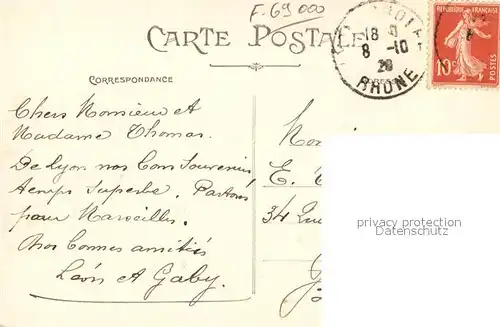 F. 69 000
CARTE POSTALE
18
8 -10
20
RHONE
RÉPUBLIQUE FRANÇAISE
10c
POSTES
CORRESPONDANCE
Chers Monsieur et
Madame Thomas.
De Lyon nos bons souvenirs
temps superbe. Partons
pour Marseille.
Nos bonnes amitiés
Léon et Gaby.
E.
34
privacy protection
Datenschutz